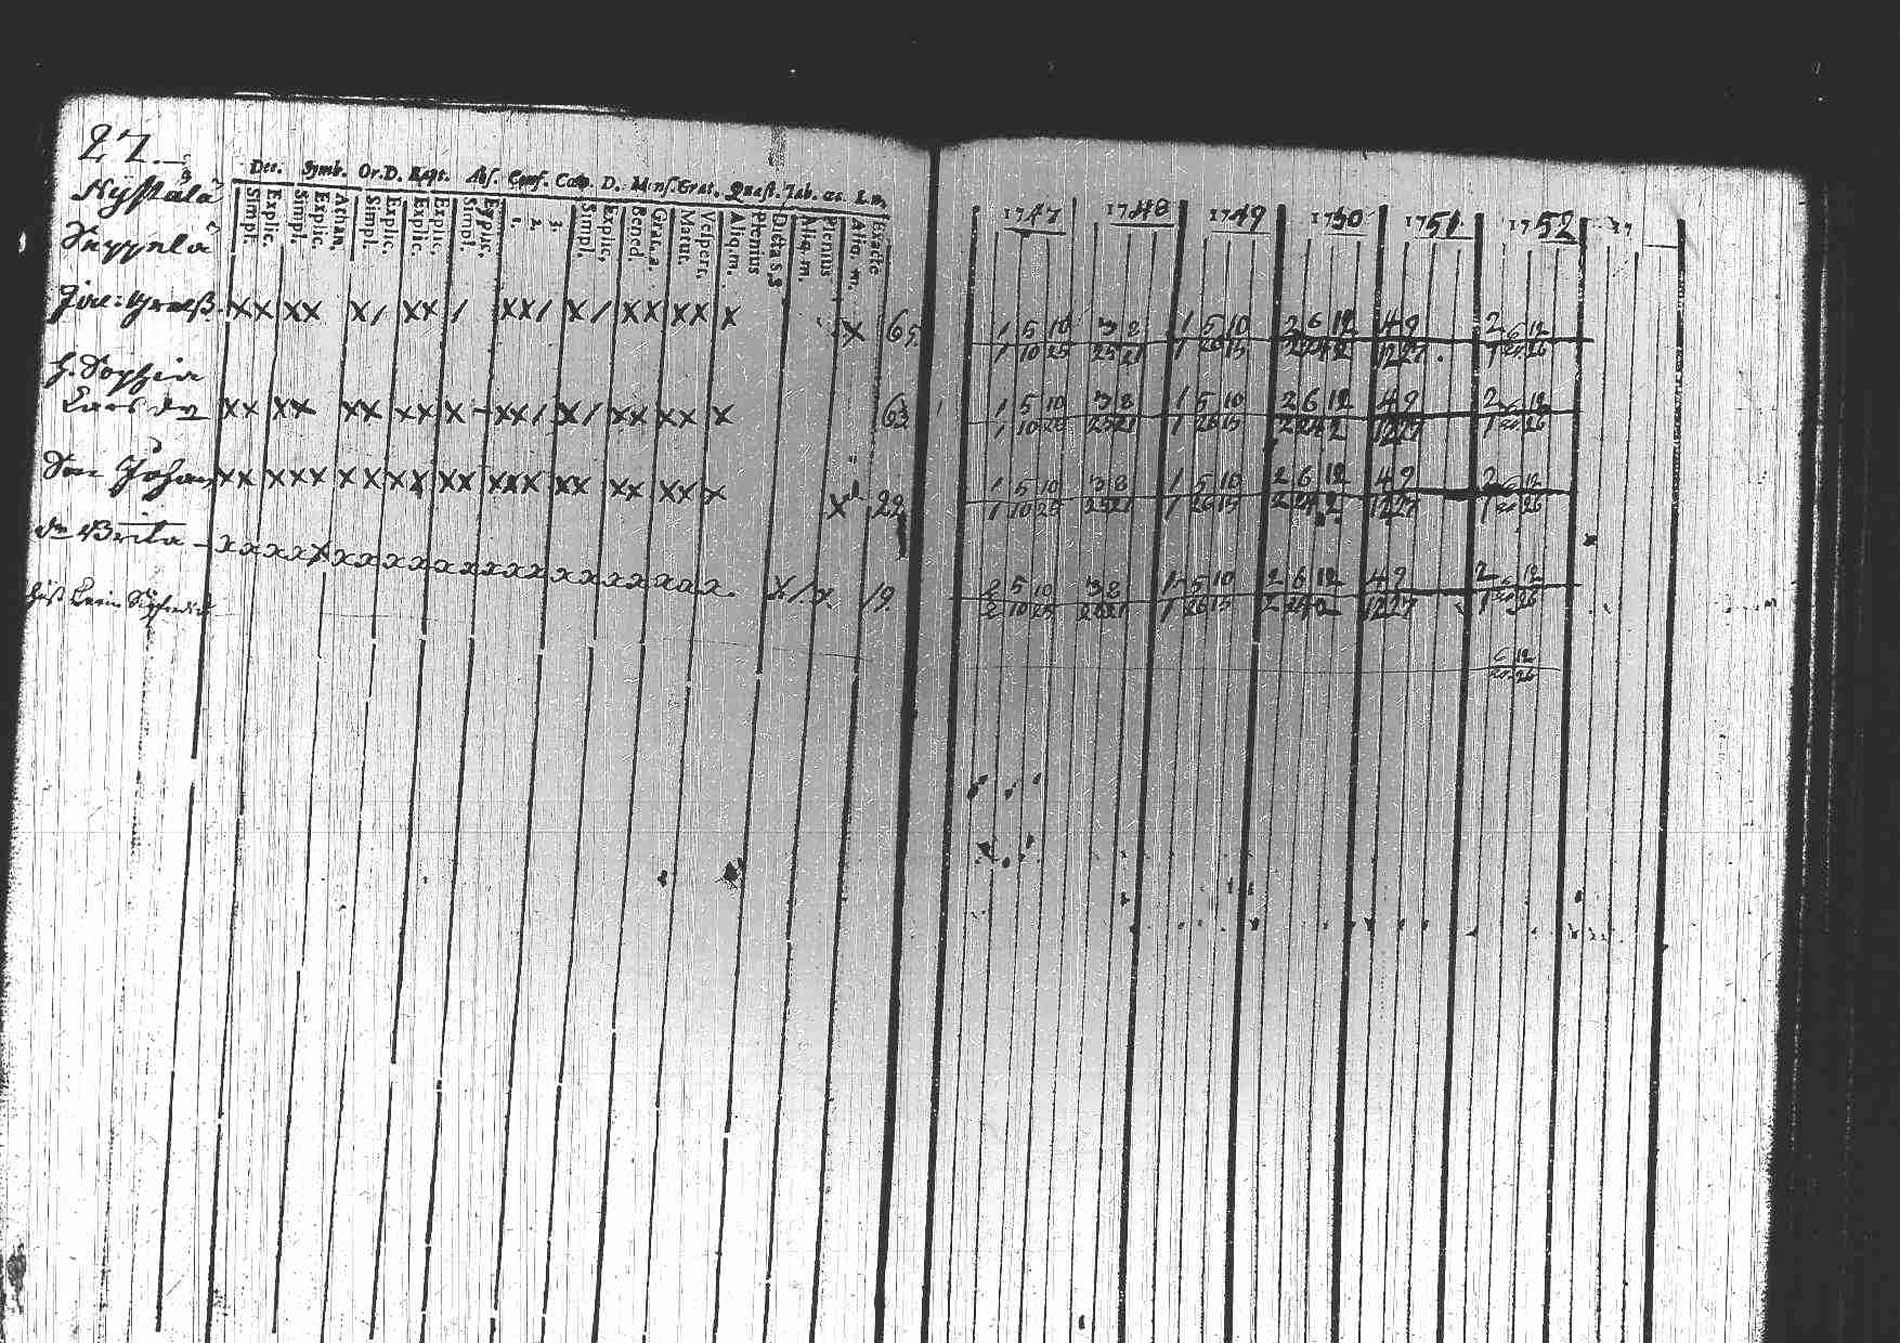 27.
Nystälä
Seppelä
Dec. Symb. Or.D. Bapt. Abs. Conf. Cœn. D. Mens. Grat. Quæst. Tab. œc. L.m.
Simpl. Explic. Simpl. Explic. Athan. Simpl. Explic. Explic. Simpl. 1. 2. 3. Simpl. Explic. Bened. Grat. a. Matut. Vesper. Aliq. m. Plenius Dicta s. s Aliq. m. Plenius Aliq. m. Exacte
1747 1748 1749 1750 1751. 1752 17
x x x x x / x x / x x / x / x x x x x x 65
1 5 10 3 8 1 5 10 2 6 12 4 9 2 6 12
1 10 25 25 21 1 26 15 2 24 2 12 27 1 20 26
H. Sophia
Lars dr x x x x x x x x x - x x / x / x x x x x 63
1 5 10 3 8 1 5 10 2 6 12 4 9 2 6 12
1 10 25 25 21 1 26 15 2 24 2 12 27 1 20 26
Son Johan x x x x x x x x x x x x x x x x x x x x x x 22
1 5 10 3 8 1 5 10 2 6 12 4 9 2 6 12
1 10 25 25 21 1 26 15 2 24 2 12 27 1 20 26
dr Brita x x x x x x x x x x x x x x x x x x x x x x / x 19
2 5 10 3 8 1 5 10 2 6 12 4 9 2 6 12
2 10 25 25 21 1 26 15 2 24 2 12 27 1 20 26
6 12
20 26